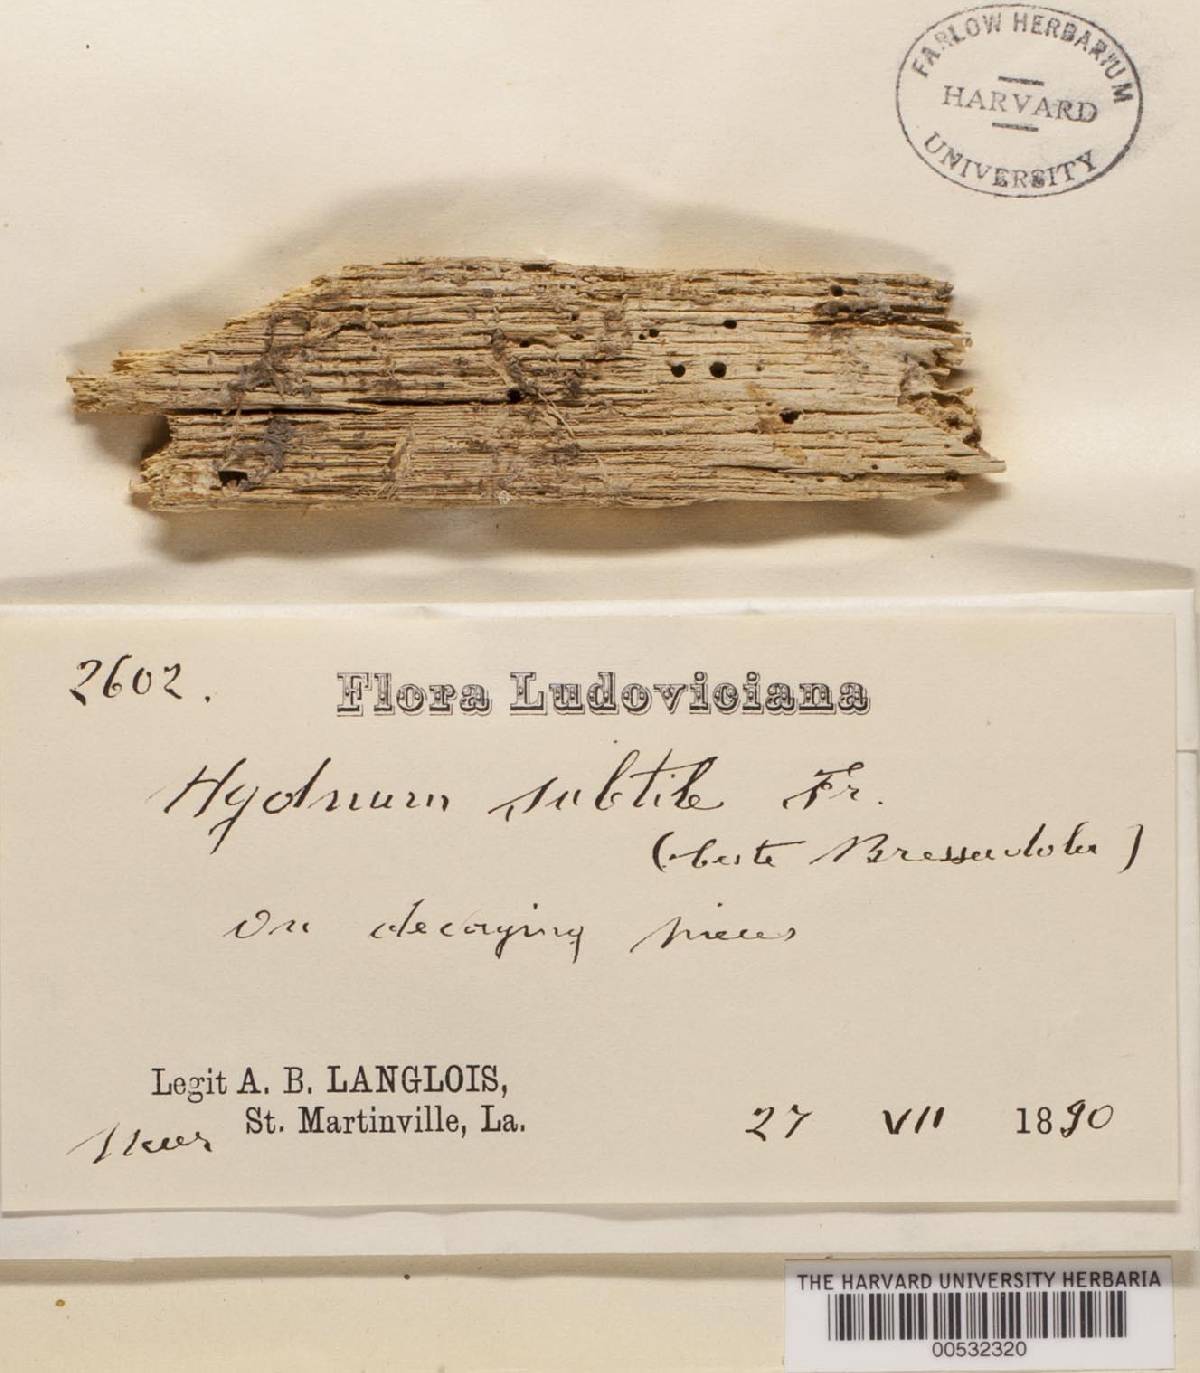 FARLOW HERBARIUM
HARVARD
UNIVERSITY
2602.
Flora Ludoviciana
Hydnum subtile Fr.
(teste Bressadola)
On decaying
Legit A. B. LANGLOIS,
near St. Martinville, La.
27 VII 1890
THE HARVARD UNIVERSITY HERBARIA
00532320